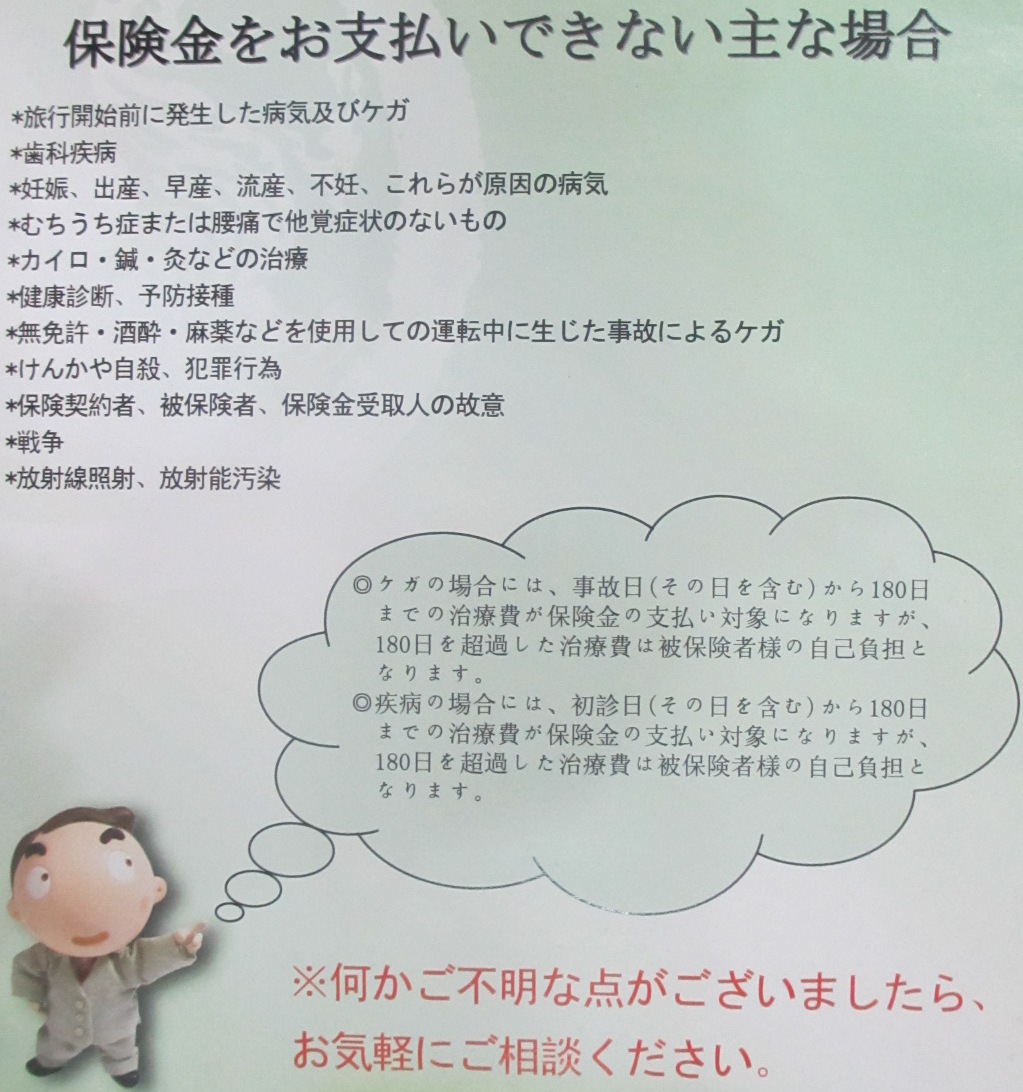 保険金をお支払いできない主な場合
*旅行開始前に発生した病気及びケガ
*歯科疾病
*妊娠、出産、早産、流産、不妊、これらが原因の病気
*むちうち症または腰痛で他覚症状のないもの
*カイロ・鍼・灸などの治療
*健康診断、予防接種
*無免許・酒酔・麻薬などを使用しての運転中に生じた事故によるケガ
*けんかや自殺、犯罪行為
*保険契約者、被保険者、保険金受取人の故意
*戦争
*放射線照射、放射能汚染
◎ケガの場合には、事故日(その日を含む)から180日
までの治療費が保険金の支払い対象になりますが、
180日を超過した治療費は被保険者様の自己負担と
なります。
◎疾病の場合には、初診日(その日を含む)から180日
までの治療費が保険金の支払い対象になりますが、
180日を超過した治療費は被保険者様の自己負担と
なります。
※何かご不明な点がございましたら、
お気軽にご相談ください。